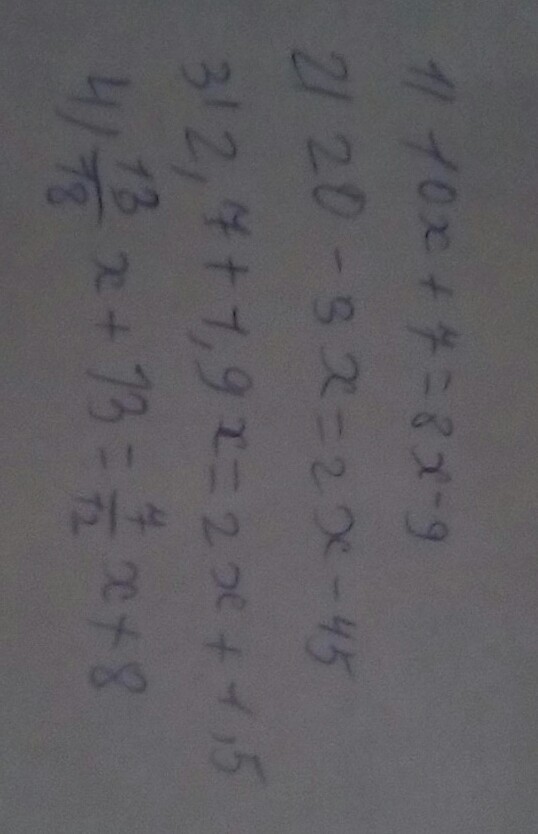 1) 10x + 7 = 8x - 9
2) 20 - 3x = 2x - 45
3) 2,7 + 1,9x = 2x + 1,5
4) 13/18 x + 13 = 7/12 x + 8